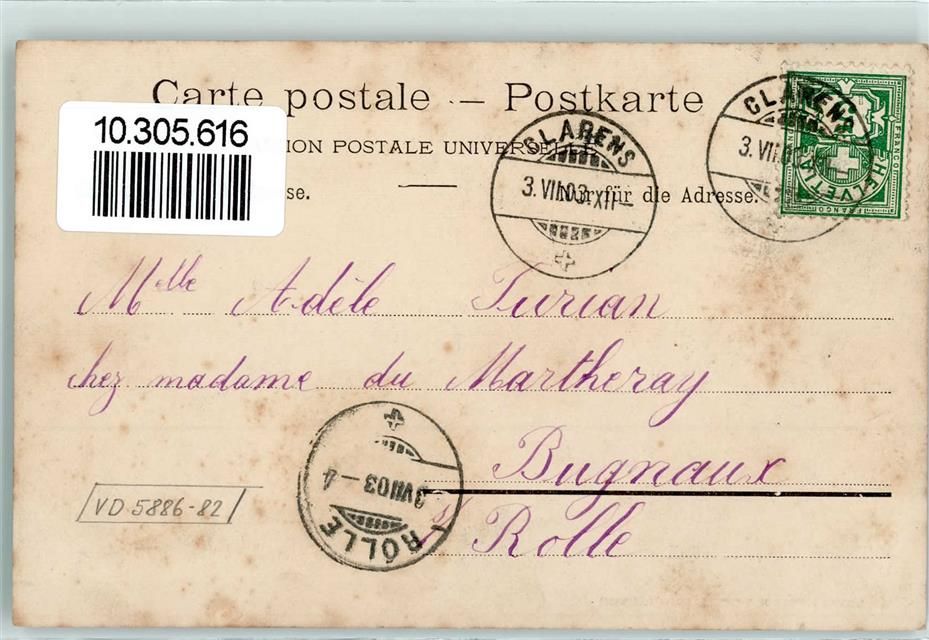 Carte postale – Postkarte
10.305.616
UNION POSTALE UNIVERSELLE
se. Nur für die Adresse.
CLARENS
3.VII.03.XII–
CLARENS
3.VII
HELVETIA
FRANCO
FRANCO
Mlle Adèle Turian
chez madame du Martheray
Bugnaux
s/ Rolle
ROLLE
3.VII.03–4
VD 5886-82